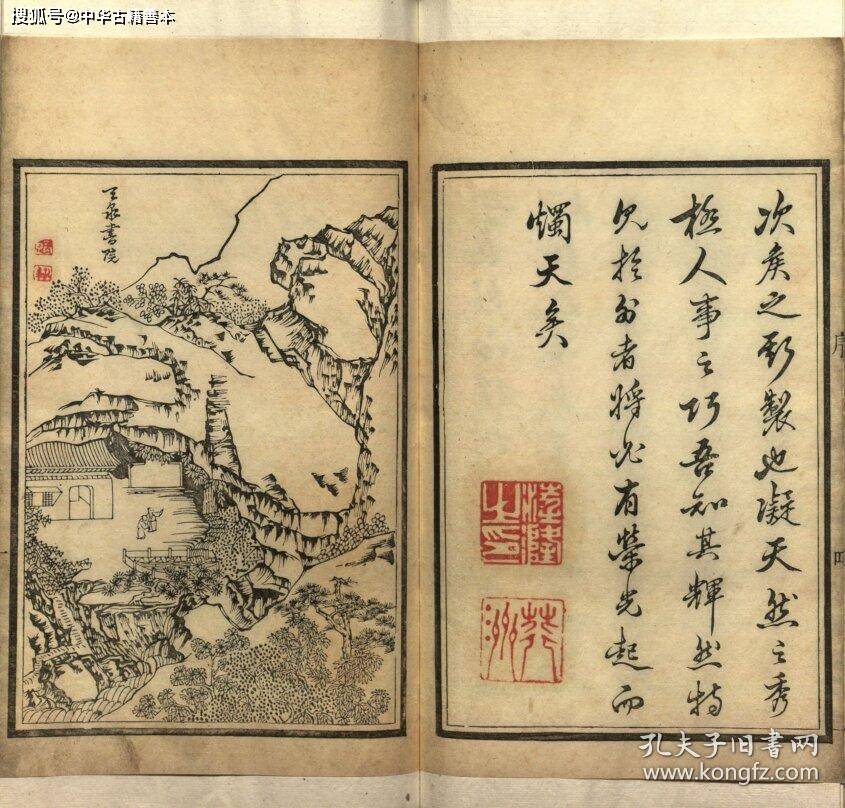 搜狐号@中华古籍善本
次矦之製也凝天然之秀
極人事之巧吾知其輝然特
見於外者將必有榮光起而
燭天矣
序
玉泉書院
孔夫子旧书网
www.kongfz.com